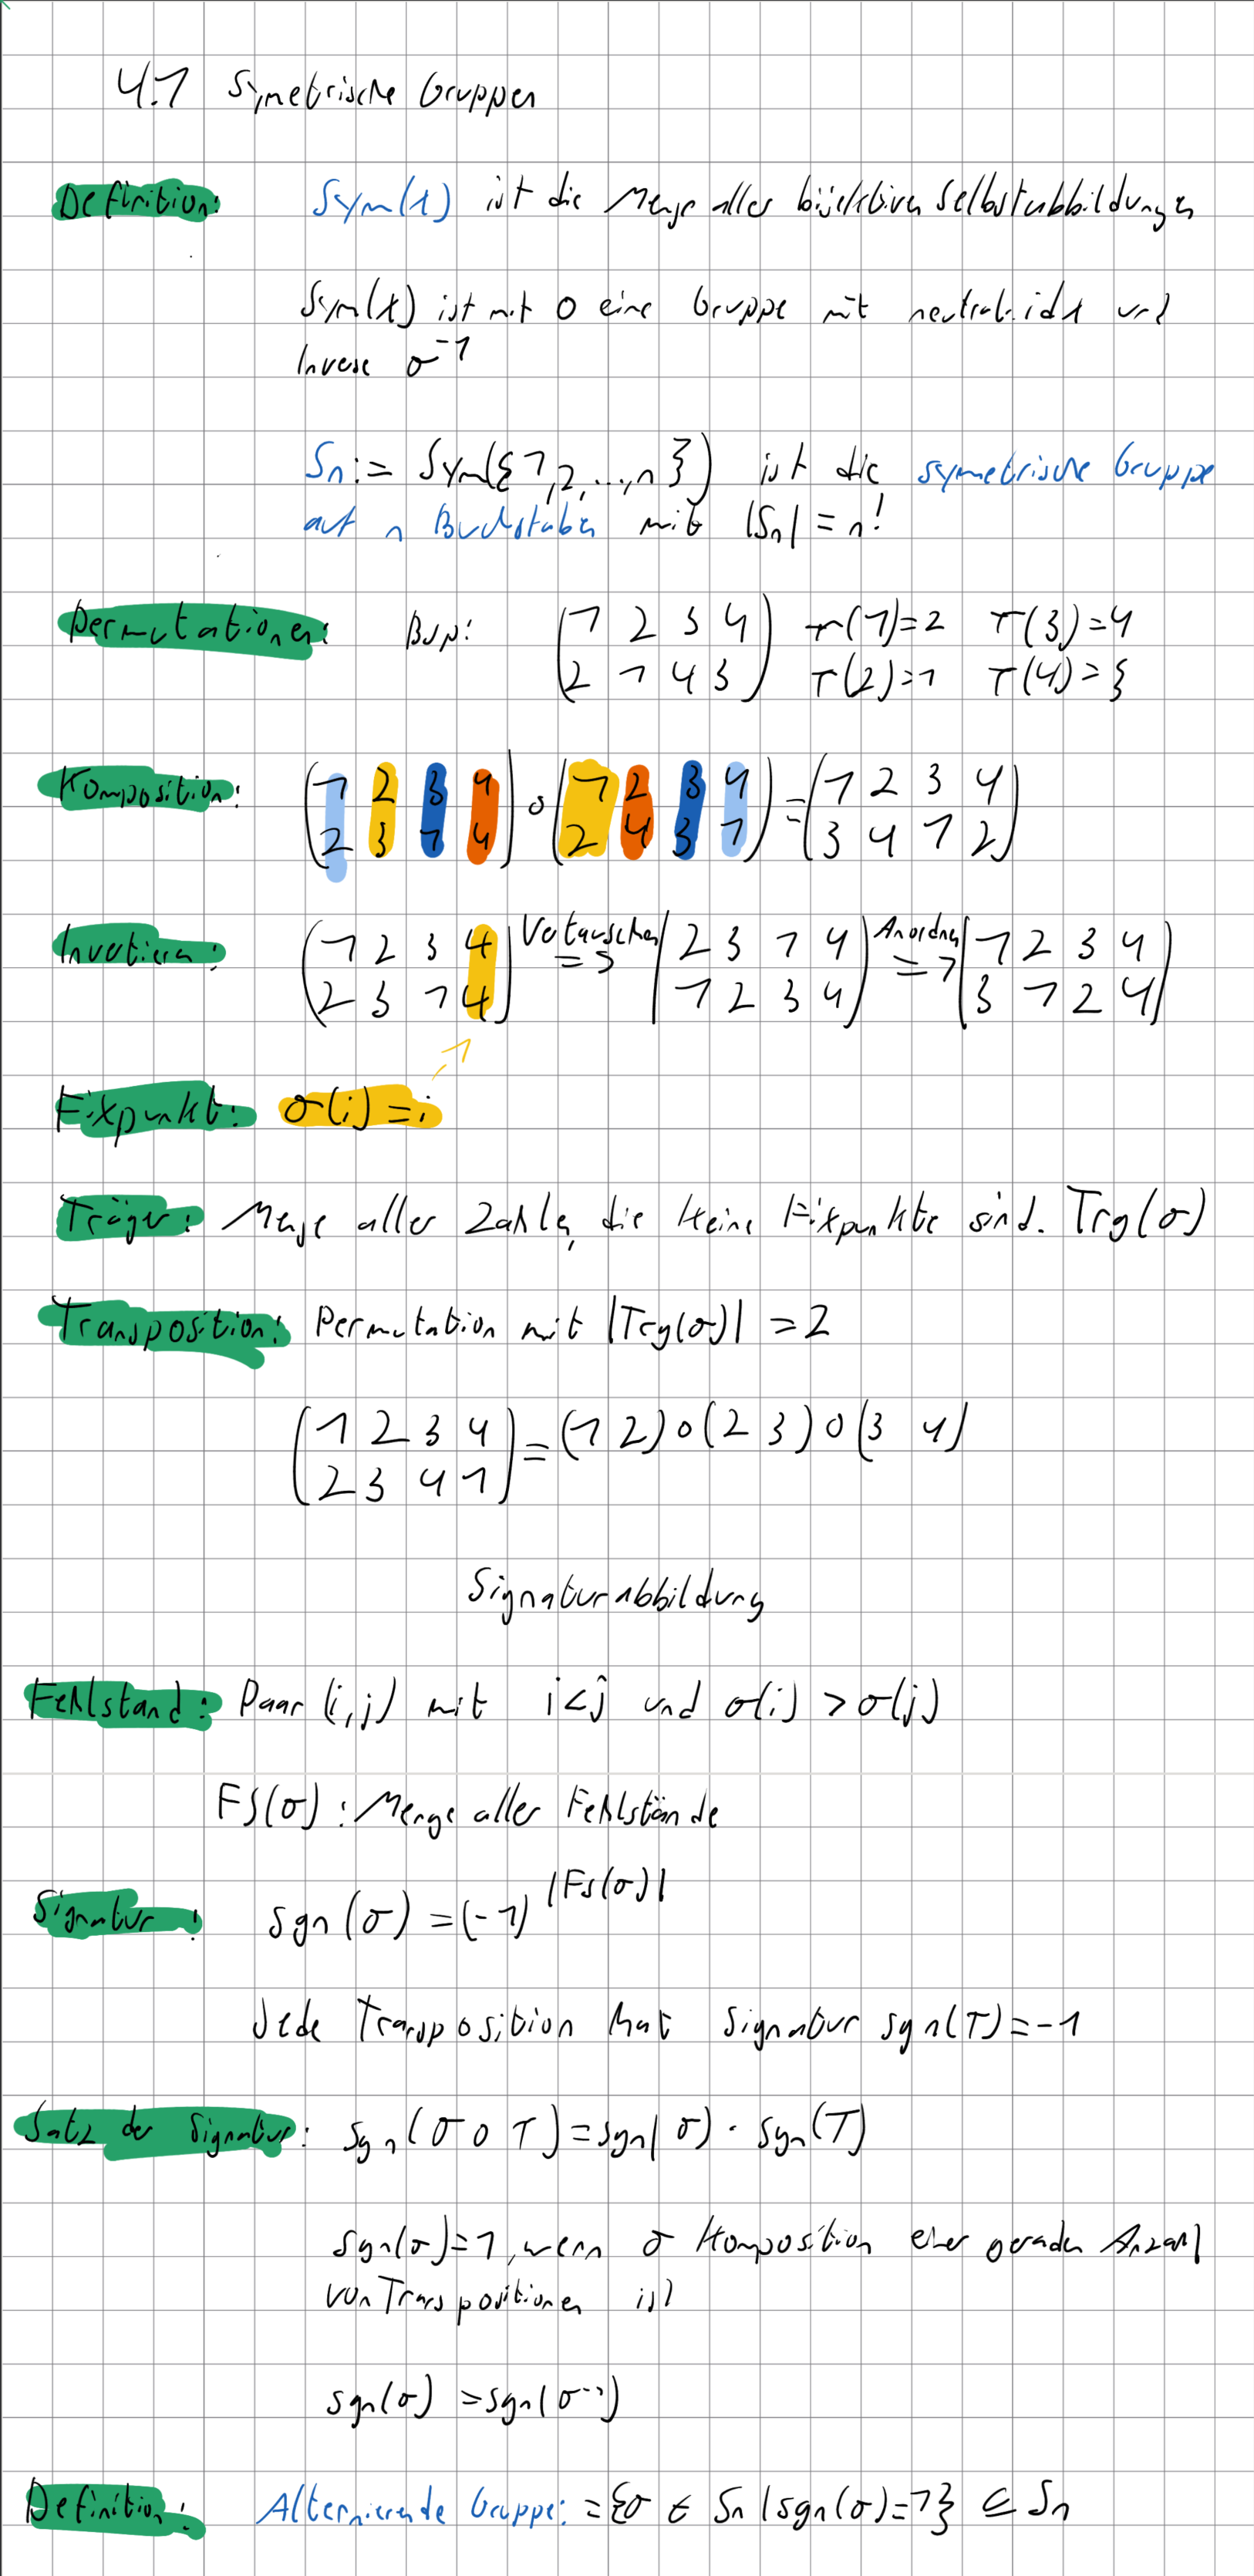 4.1 Symetrische Gruppen
Definition: Sym(X) ist die Menge aller bijektiven Selbstabbildungen
Sym(X) ist mit ∘ eine Gruppe mit neutral. idX und
Inverse σ⁻¹
Sn := Sym({1,2,...,n}) ist die symetrische Gruppe
auf n Buchstaben mit |Sn| = n!
Permutationen: Bsp: (1 2 3 4 τ(1)=2 τ(3)=4
2 1 4 3) τ(2)=1 τ(4)=3
Komposition: (1 2 3 4 / 2 3 1 4) ∘ (1 2 3 4 / 2 4 3 1) = (1 2 3 4 / 3 4 1 2)
Invertieren: (1 2 3 4 / 2 3 1 4) Vertauschen => (2 3 1 4 / 1 2 3 4) Anordnen => (1 2 3 4 / 3 1 2 4)
Fixpunkt: σ(i) = i
Träger: Menge aller Zahlen, die keine Fixpunkte sind. Trg(σ)
Transposition: Permutation mit |Trg(σ)| = 2
(1 2 3 4 / 2 3 4 1) = (1 2) ∘ (2 3) ∘ (3 4)
Signaturabbildung
Fehlstand: Paar (i,j) mit i<j und σ(i) > σ(j)
FS(σ) : Menge aller Fehlstände
Signatur: sgn(σ) = (-1)^|Fs(σ)|
Jede Transposition hat Signatur sgn(τ) = -1
Satz der Signatur: sgn(σ ∘ τ) = sgn(σ) · sgn(τ)
sgn(σ)=1, wenn σ Komposition einer geraden Anzahl
von Transpositionen ist
sgn(σ) = sgn(σ⁻¹)
Definition: Alternierende Gruppe: = {σ ∈ Sn | sgn(σ)=1} ⊆ Sn